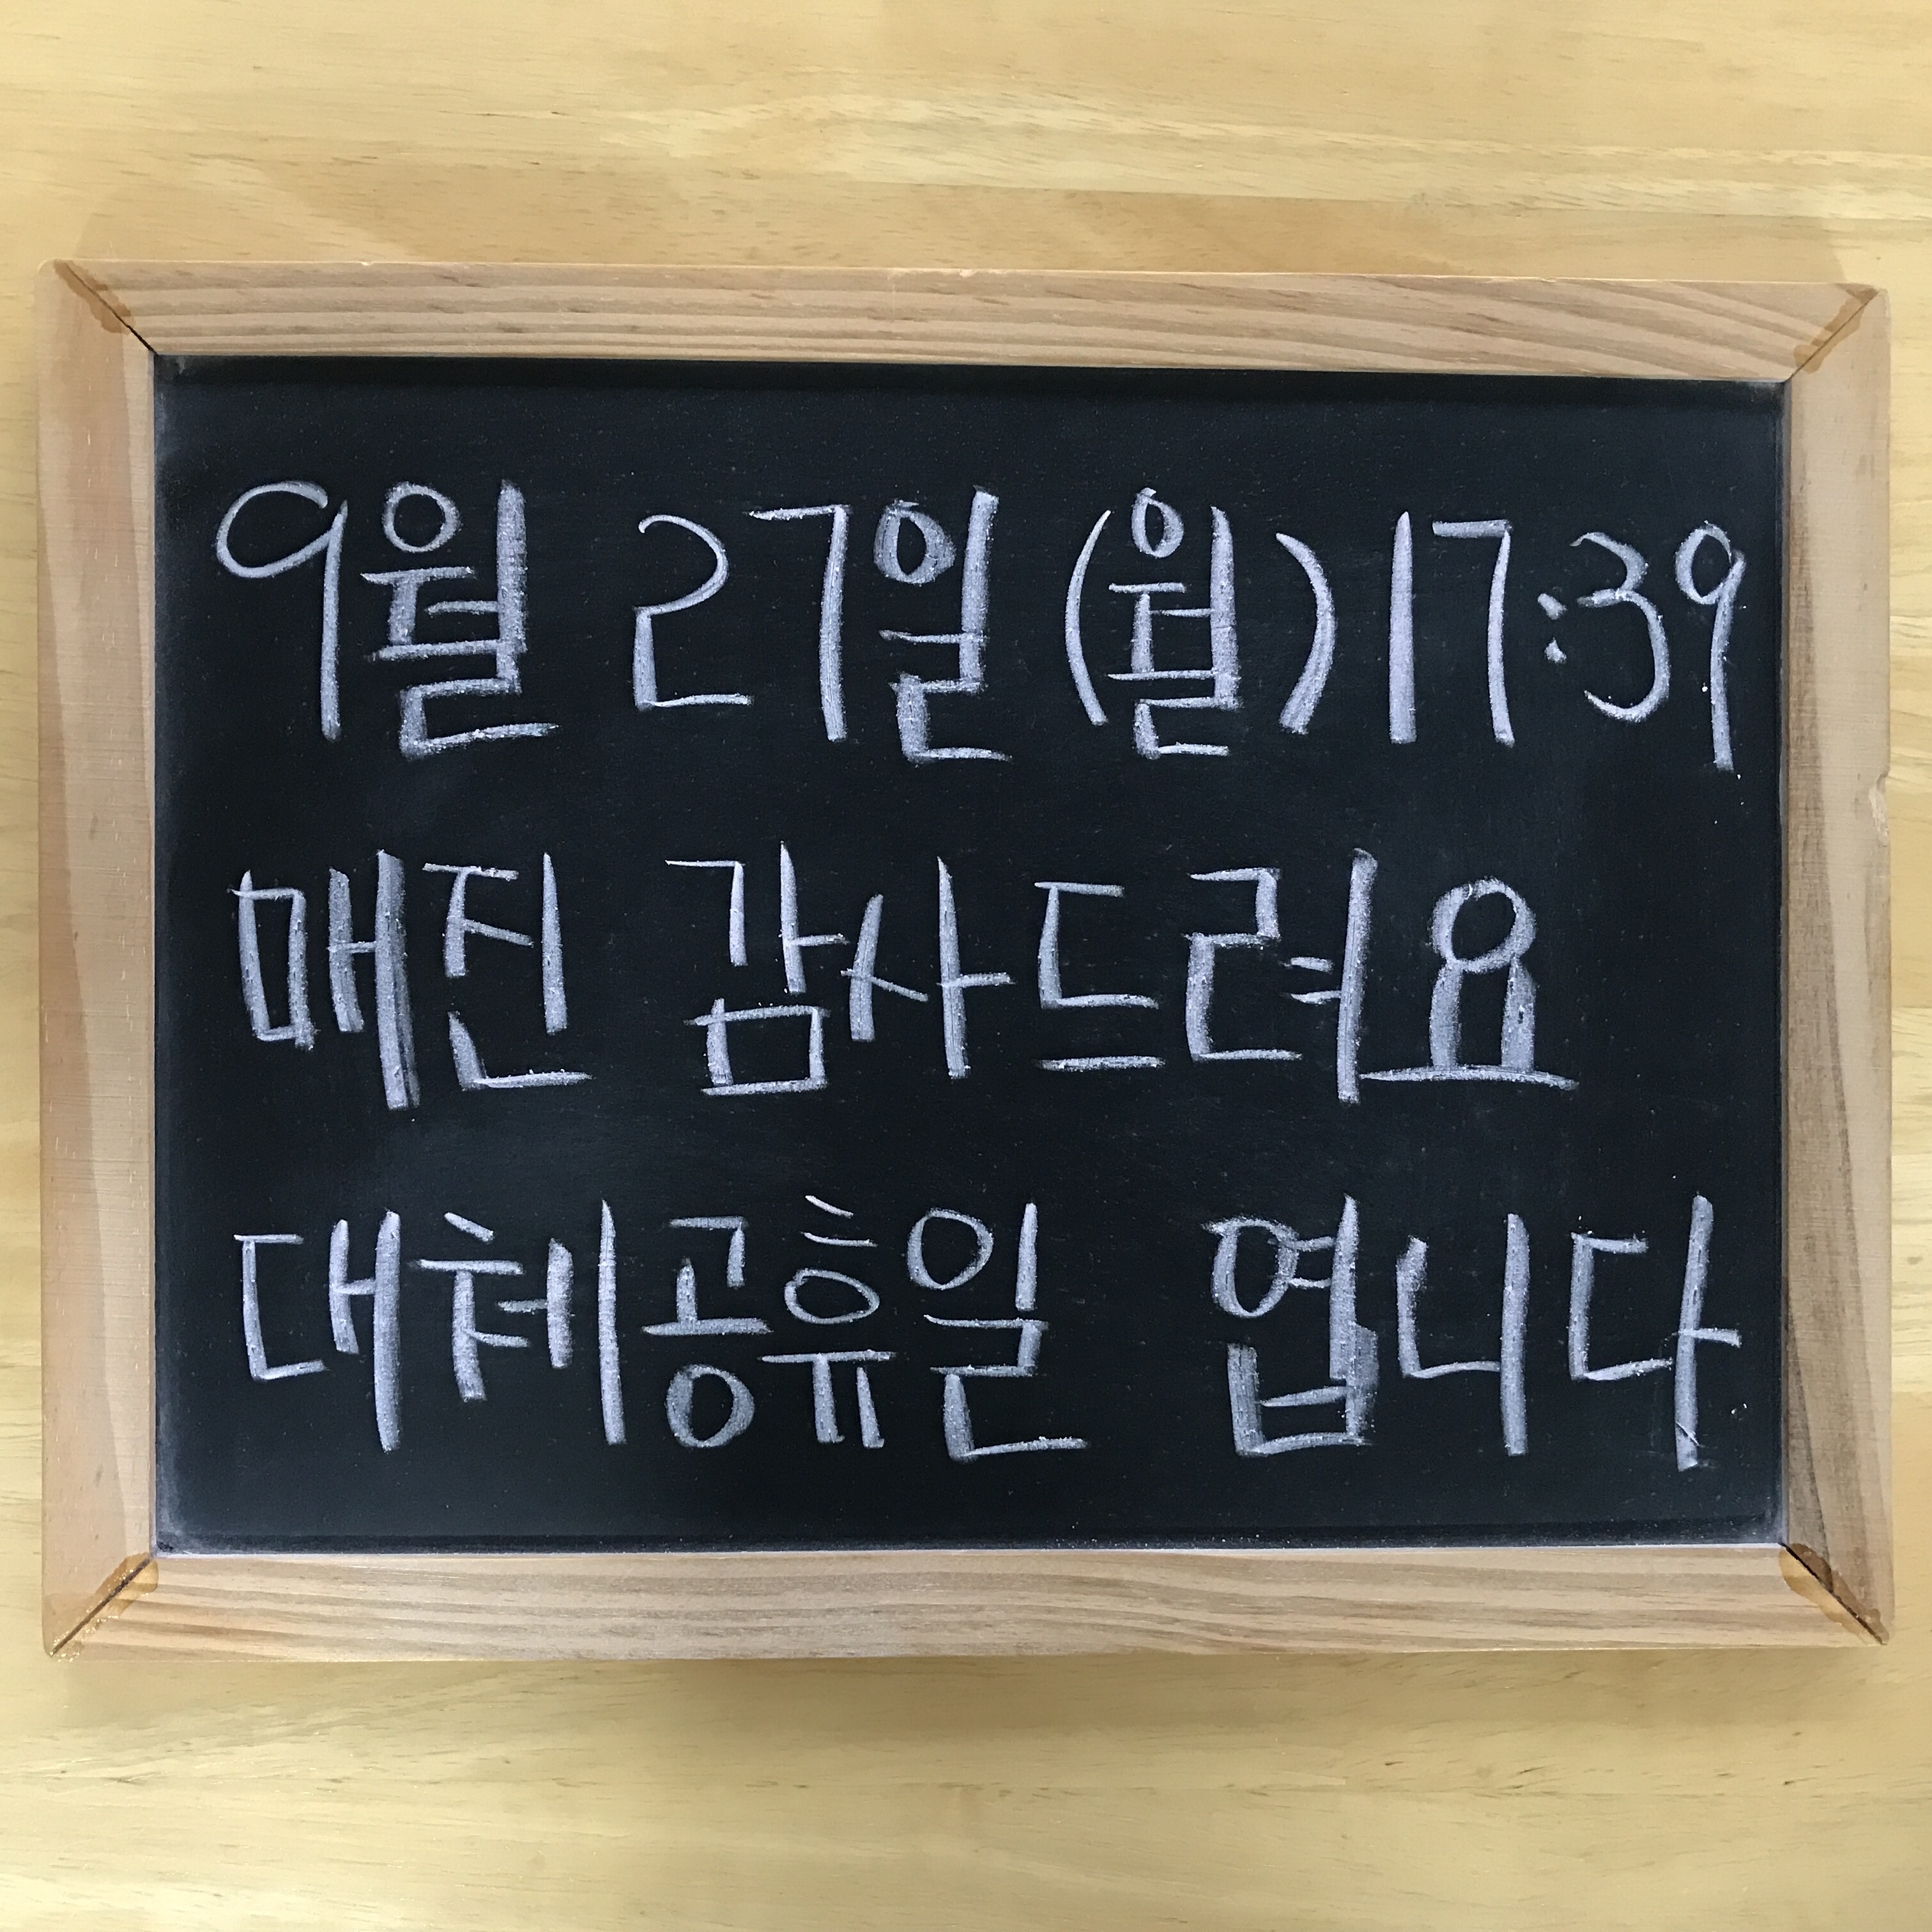 9월 27일 (월) 17:39
매진 감사드려요
대체공휴일 엽니다